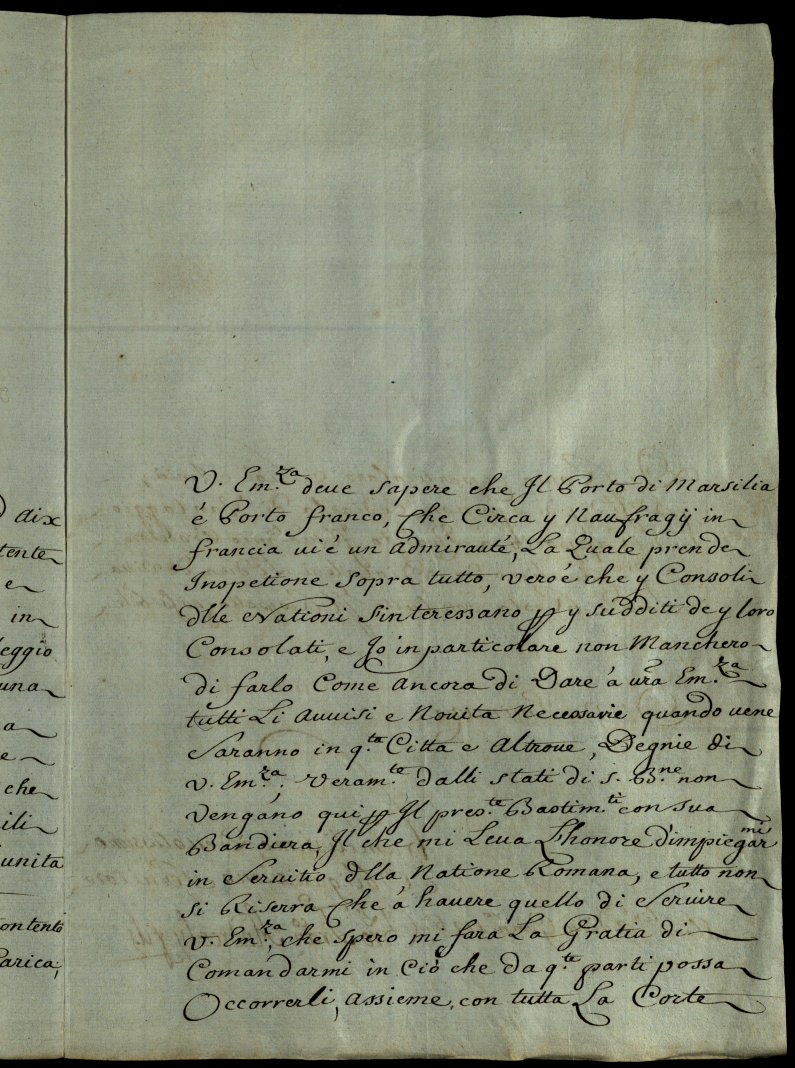 aix
tente
e
in
eggio
una
a
e
che
ili
unita
ontento
Carica,
V. Em.za deve sapere che Jl Porto di Marsilia
é Porto franco, Che Circa y Naufragij in
francia vi é un admirauté, La Quale prende
Inspetione sopra tutto, vero é che y Consoli
dlle Nationi s'interessano p y sudditi de y loro
Consolati, e Jo in particolare non Manchero
di farlo Come ancora di Dare á vra Em.za
tutti Li Auuisi e Nouita Necessarie quando uene
Saranno in q.ta Citta e Altroue, Degnie di
V. Em.za; Veram.te dalli stati di S. B.ne non
Vengano qui p Il pres.te Bastim.ti con sua
Bandiera, Il che mi Leua L'honore d'impiegarmi
in Seruitio dlla Natione Romana, e tutto non
si Riserra Che á hauere quello di Seruire
V. Em.za, che spero mi fara La Gratia di
Comandarmi in Ciò che da q.te parti possa
Occorrerli, assieme, con tutta La Corte